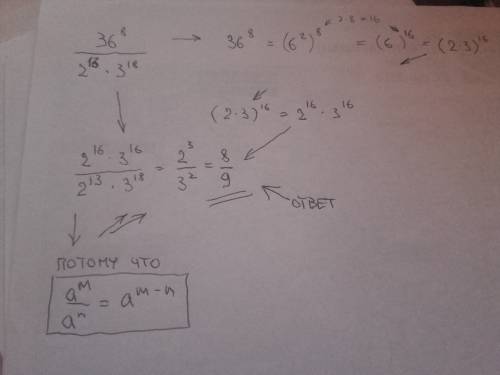 36⁸ / (2¹³ · 3¹⁸) → 36⁸ = (6²)⁸ = (6)¹⁶ = (2·3)¹⁶
2·8=16
(2·3)¹⁶ = 2¹⁶ · 3¹⁶
(2¹⁶ · 3¹⁶) / (2¹³ · 3¹⁸) = 2³ / 3² = 8/9
ОТВЕТ
ПОТОМУ ЧТО
aᵐ / aⁿ = aᵐ⁻ⁿ